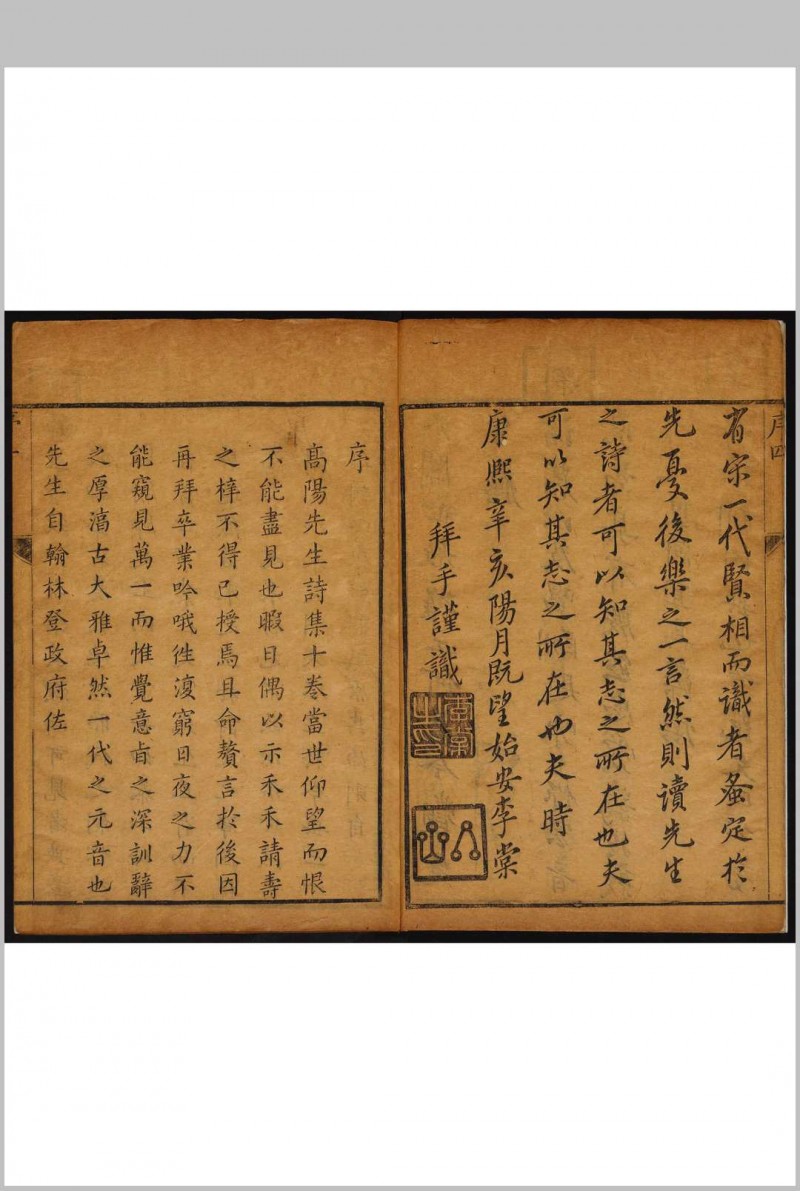 序四
有宋一代賢相而識者蚤定於
先憂後樂之一言然則讀先生
之詩者可以知其志之所在也夫
可以知其志之所在也夫時
康熙辛亥陽月既望始安李棠
拜手謹識
李棠之印
序
髙陽先生詩集十卷當世仰望而恨
不能盡見也暇日偶以示禾禾請壽
之梓不得已授焉且命贅言於後因
再拜卒業吟哦徃復窮日夜之力不
能窺見萬一而惟覺意旨之深訓辭
之厚滈古大雅卓然一代之元音也
先生自翰林登政府佐